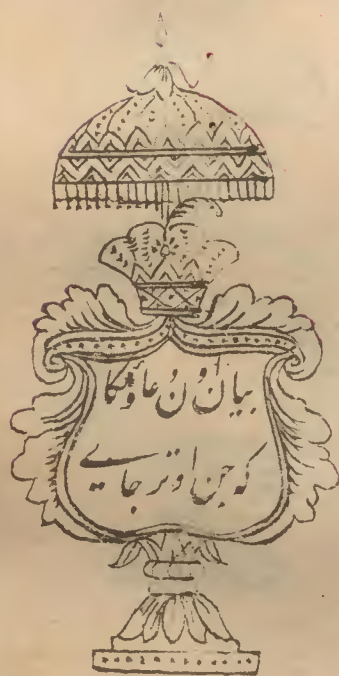 بیان اون دعاؤنکا
کہ جن اوتر جایے